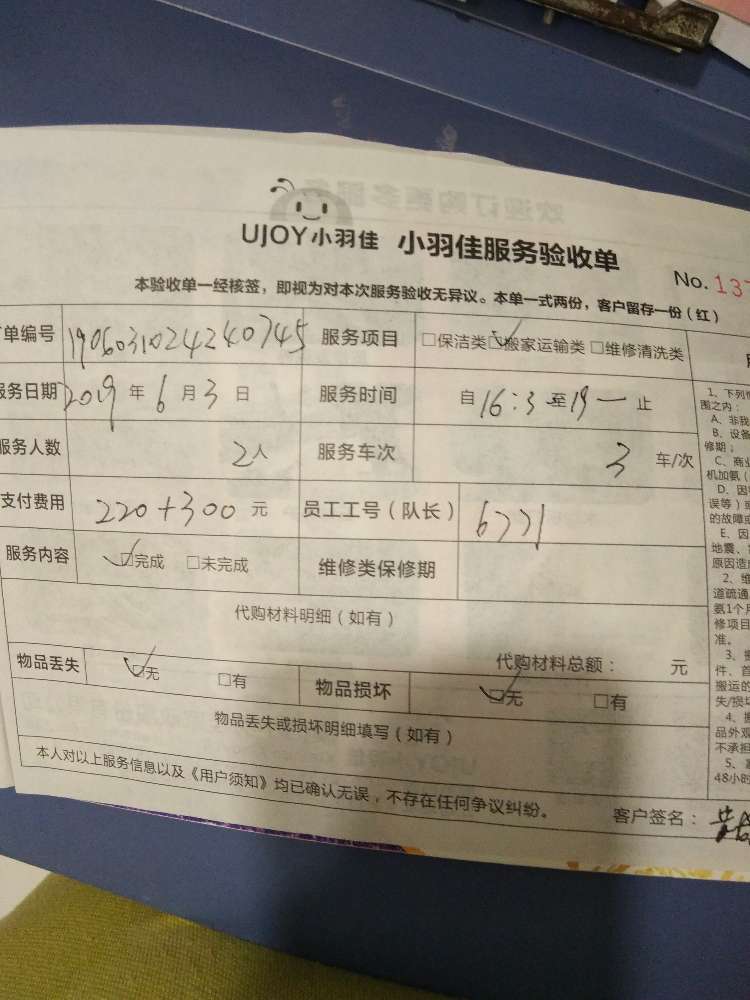 UJOY小羽佳 小羽佳服务验收单
No. 137
本验收单一经核签，即视为对本次服务验收无异议。本单一式两份，客户留存一份（红）
单编号 1906031024240745 服务项目 □保洁类 ☑搬家运输类 □维修清洗类
服务日期 2019 年 6 月 3 日 服务时间 自 16:3 至 19 一 止
服务人数 2人 服务车次 3 车/次
支付费用 220+300 元 员工工号（队长） 6771
服务内容 ☑完成 □未完成 维修类保修期
代购材料明细（如有）
代购材料总额： 元
物品丢失 ☑无 □有 物品损坏 ☑无 □有
物品丢失或损坏明细填写（如有）
本人对以上服务信息以及《用户须知》均已确认无误，不存在任何争议纠纷。
客户签名：
1、下列
围之内：
A、非我
B、设备
修期；
C、商业
机加氨（
D、因
误等）或
的故障或
E、因
地震、
原因造成
2、维
道疏通
氨1个月
修项目
准。
3、搬
件、首
搬运的
失/损坏
4、搬
品外观
不承担
5、
48小时